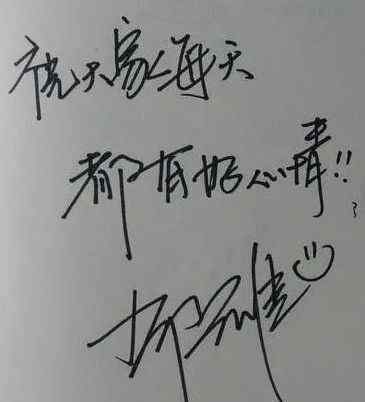 祝大家每天
都有好心情!!